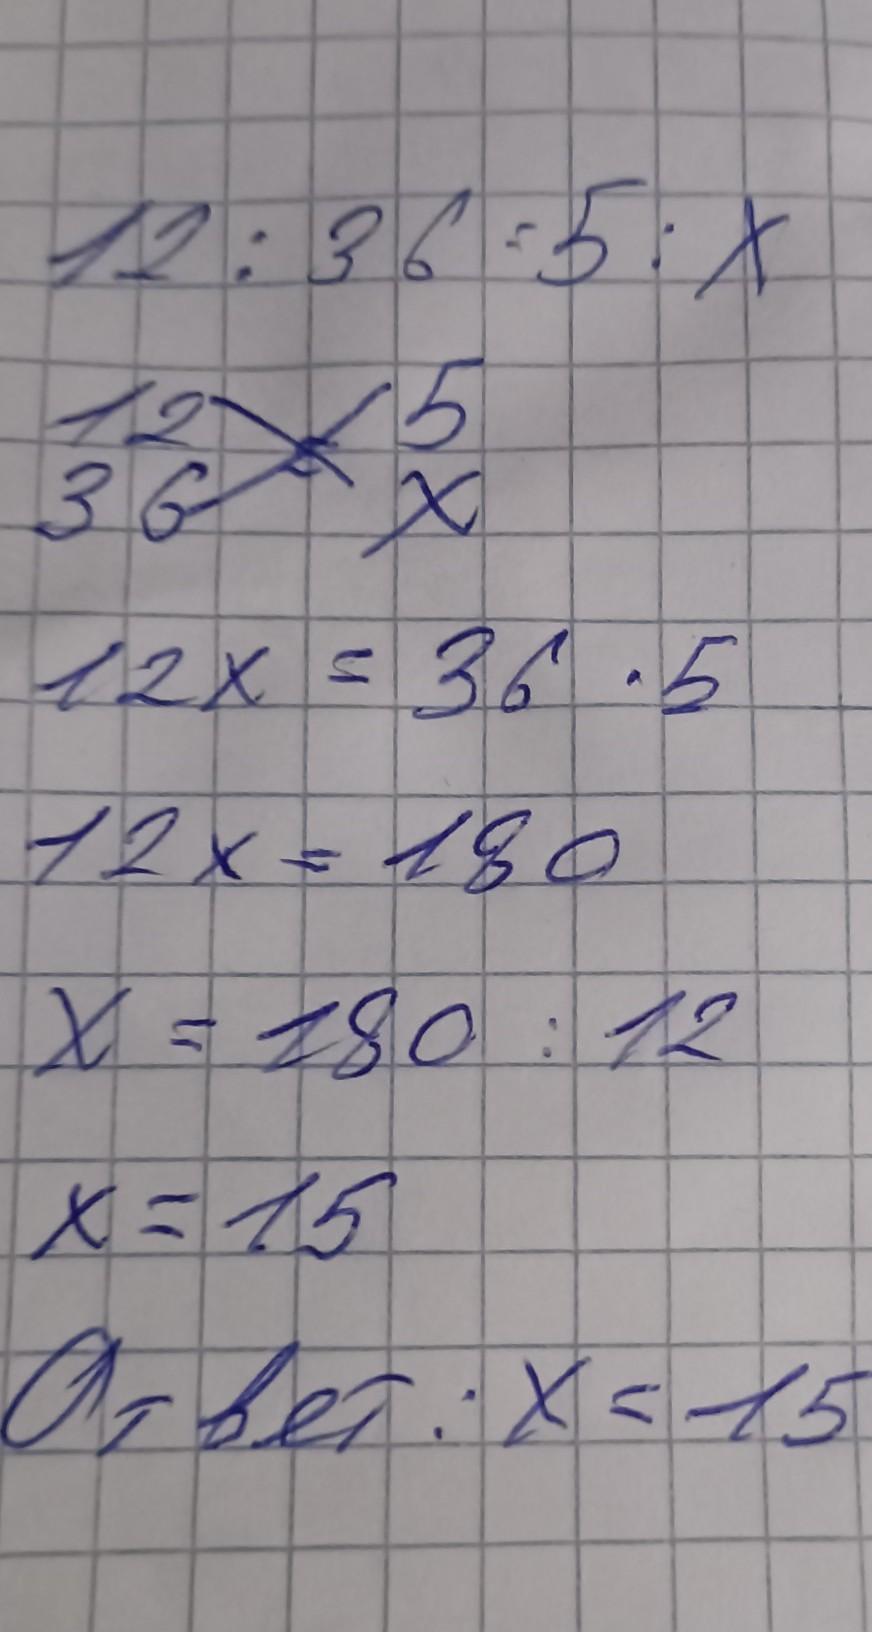 12 : 36 = 5 : x
12 5
36 x
12x = 36 · 5
12x = 180
x = 180 : 12
x = 15
Ответ: x = 15